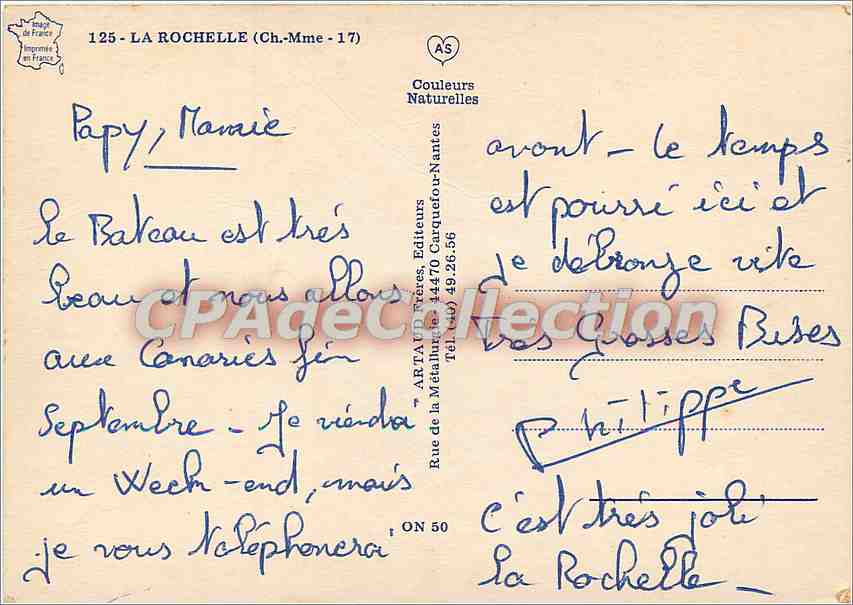 Image
de France
Imprimée
en France
125 - LA ROCHELLE (Ch.-Mme - 17)
AS
Couleurs
Naturelles
Papy, Mamie
le Bateau est trés
beau et nous allons
aux Canaries fin
Septembre - Je viendrai
un Week-end, mais
je vous téléphonerai
"ARTAUD Frères, Editeurs
Rue de la Métallurgie - 44470 Carquefou-Nantes
Tél. (40) 49.26.56
ON 50
avant - le temps
est pourri ici et
je débronze vite
Tres Grosses Bises
Philippe
C'est trés joli
la Rochelle -
CPAdeCollection